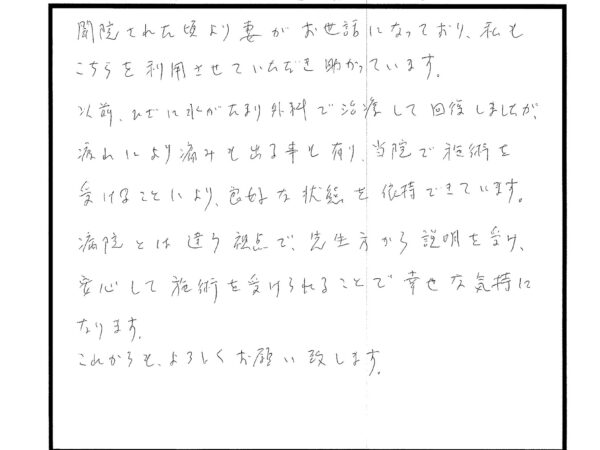 開院された頃より妻がお世話になっており、私も
こちらを利用させていただき助かっています。
以前、ひざに水がたまり外科で治療して回復しましたが、
疲れにより痛みも出る事も有り、当院で施術を
受けることにより、良好な状態を依持できています。
病院とは違う視点で、先生方から説明を受け、
安心して施術を受けられることで幸せな気持に
なります。
これからも、よろしくお願い致します。